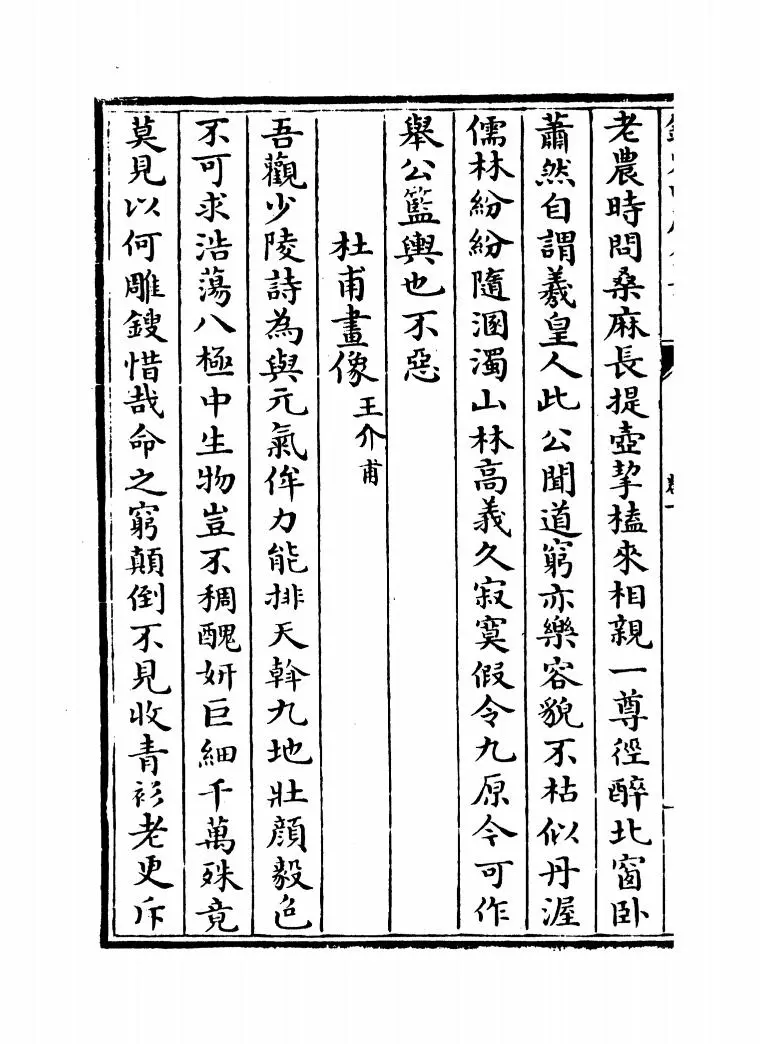 老農時問桑麻長提壺挈榼來相親一尊徑醉北窗臥
蕭然自謂羲皇人此公聞道窮亦樂容貌不枯似丹渥
儒林紛紛隨溷濁山林高義久寂寞假令九原今可作
舉公籃輿也不惡
杜甫畫像 王介甫
吾觀少陵詩為與元氣侔力能排天斡九地壯顏毅色
不可求浩蕩八極中生物豈不稠醜妍巨細千萬殊竟
莫見以何雕鎪惜哉命之窮顛倒不見收青衫老更斥